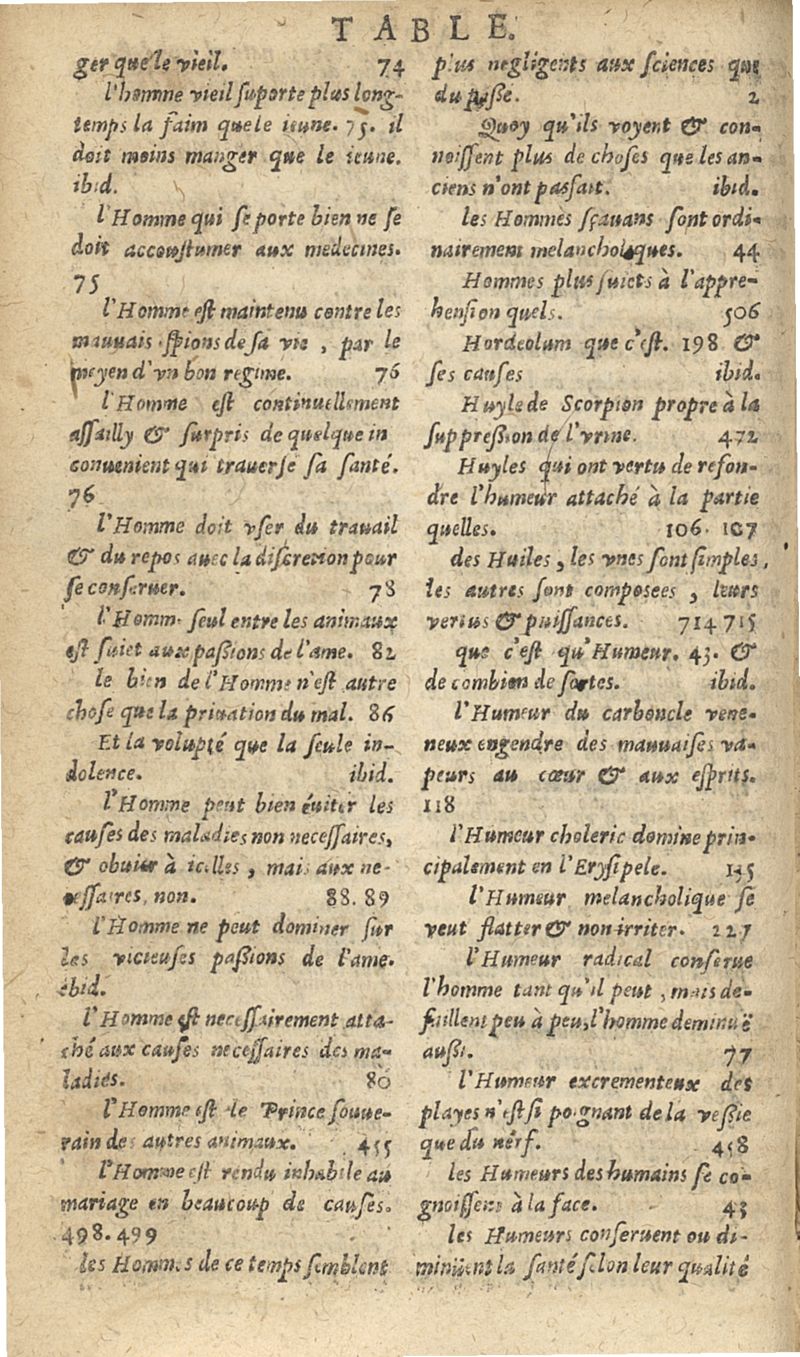 TABLE.
ger que le vieil. 74
l'homme vieil suporte plus long-
temps la faim que le ieune. 75. il
doit moins manger que le ieune.
ibid.
l'Homme qui se porte bien ne se
doit accoustumer aux medecines.
75
l'Homme est maintenu contre les
mauuais spions de sa vie, par le
moyen d'vn bon regime. 76
l'Homme est continuellement
assailly & surpris de quelque in
conuenient qui trauerse sa santé.
76
l'Homme doit vser du trauail
& du repos auec la discretion pour
se conseruer. 78
l'Homme seul entre les animaux
est suiet aux passions de l'ame. 82
le bien de l'Homme n'est autre
chose que la priuation du mal. 86
Et la volupté que la seule in-
dolence. ibid.
l'Homme peut bien éuiter les
causes des maladies non necessaires,
& obuier à icelles, mais aux ne-
cessaires, non. 88. 89
l'Homme ne peut dominer sur
les vicieuses passions de l'ame.
ibid.
l'Homme est necessairement atta-
ché aux causes necessaires des ma-
ladies. 80
l'Homme est le Prince souue-
rain des autres animaux. 455
l'Homme est rendu inhabile au
mariage en beaucoup de causes.
498. 499
les Hommes de ce temps semblent
plus negligents aux sciences que
du passé. 2
Quoy qu'ils voyent & con-
noissent plus de choses que les an-
ciens n'ont pas fait. ibid.
les Hommes sçauans sont ordi-
nairement melancholiques. 44
Hommes plus suiets à l'appre-
hension quels. 506
Hordeolum que c'est. 198 &
ses causes ibid.
Huyle de Scorpion propre à la
suppression de l'vrine. 472
Huyles qui ont vertu de refon-
dre l'humeur attaché à la partie
quelles. 106. 107
des Huiles, les vnes sont simples,
les autres sont composees, leurs
vertus & puissances. 714 715
que c'est qu'Humeur. 43. &
de combien de sortes. ibid.
l'Humeur du carboncle vene-
neux engendre des mauuaises va-
peurs au cœur & aux esprits.
118
l'Humeur choleric domine prin-
cipalement en l'Erysipele. 135
l'Humeur melancholique se
veut flatter & non irriter. 227
l'Humeur radical conserue
l'homme tant qu'il peut, mais de-
faillent peu à peu, l'homme deminuë
aussi. 77
l'Humeur excrementeux des
playes n'est si poignant de la vessie
que du nerf. 458
les Humeurs des humains se co-
gnoissent à la face. 43
les Humeurs conseruent ou di-
minüent la santé selon leur qualité